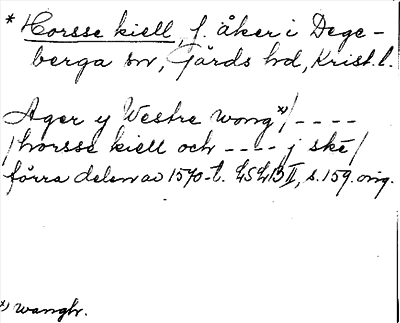 * Horsse kiell, f. åker i Dege-
berga sn, Gärds hd, Krist. l.
Ager y Westre wong *)/ ----
/horsse kiell och ---- j ske/
förra delen av 1570-t. LSLB II, s. 159. orig.
*) wangh.